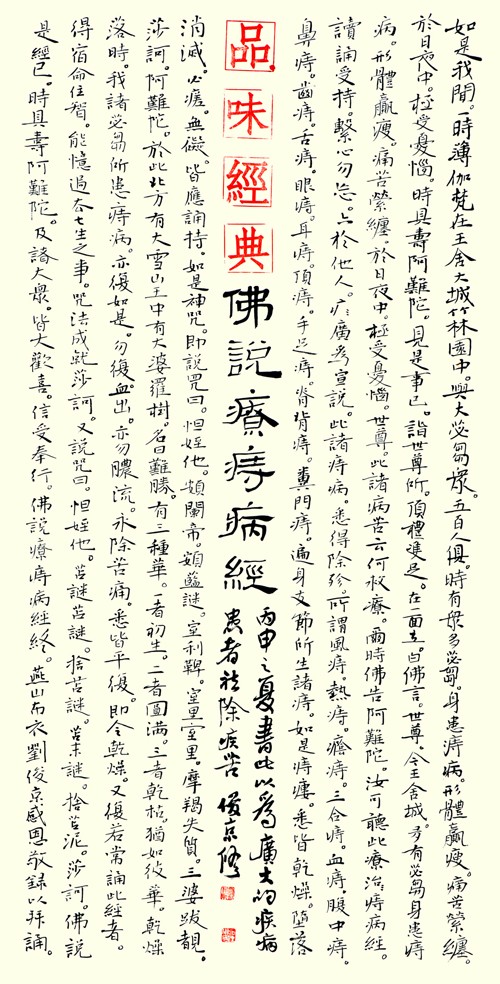 如是我聞。一時薄伽梵在王舍大城竹林園中。與大苾芻衆。五百人俱。時有衆多苾芻。身患痔病。形體羸瘦。痛苦縈纏。
於日夜中。極受憂惱。時具壽阿難陀。見是事已。詣世尊所。頂禮雙足。在一面立。白佛言。世尊。今王舍城。多有苾芻身患痔
病。形體羸瘦。痛苦縈纏。於日夜中。極受憂惱。世尊。此諸病苦云何救療。爾時佛告阿難陀。汝可聽此療治痔病經。
讀誦受持。繫心勿忘。亦於他人。廣爲宣說。此諸痔病。悉得除殄。所謂風痔。熱痔。癊痔。三合痔。血痔。腹中痔。
鼻痔。齒痔。舌痔。眼痔。耳痔。頂痔。手足痔。脊背痔。糞門痔。遍身支節所生諸痔。如是痔瘻。悉皆乾燥。墮落
品味經典
佛說療痔病經
丙申之夏書此以爲廣大的疾病
患者祛除疾苦 俊京修
消滅。必瘥。無疑。皆應誦持。如是神咒。即說咒曰。怛姪他。頞闌帝。頞藍謎。室利鞞。室里室里。摩羯失質。三婆跋覩。
莎訶。阿難陀。於此北方有大雪山王中有大娑羅樹。名曰難勝。有三種華。一者初生。二者圓滿。三者乾枯。猶如彼華。乾燥
落時。我諸苾芻所患痔病。亦復如是。勿復血出。亦勿膿流。永除苦痛。悉皆平復。即令乾燥。又復若常誦此經者。
得宿命住智。能憶過去七生之事。咒法成就莎訶。又說咒曰。怛姪他。苫謎苫謎。捨苫謎。苫末謎。捨苫泥。莎訶。佛說
是經已。時具壽阿難陀。及諸大衆。皆大歡喜。信受奉行。佛說療痔病經終。燕山布衣劉俊京感恩敬録以拜誦。